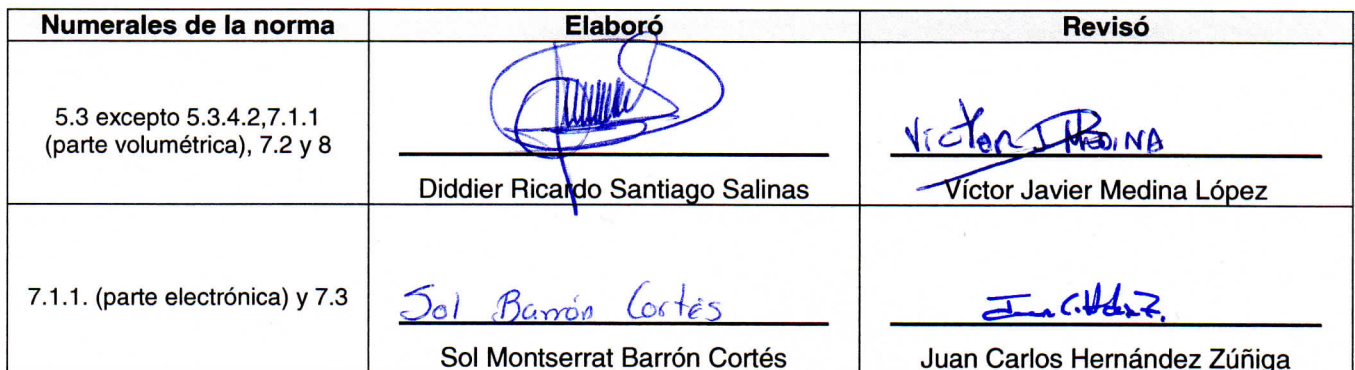 Numerales de la norma Elaboró Revisó
5.3 excepto 5.3.4.2,7.1.1
(parte volumétrica), 7.2 y 8
VícTOR J MEDINA
Diddier Ricardo Santiago Salinas Víctor Javier Medina López
7.1.1. (parte electrónica) y 7.3
Sol Barrón Cortés
Sol Montserrat Barrón Cortés Juan Carlos Hernández Zúñiga